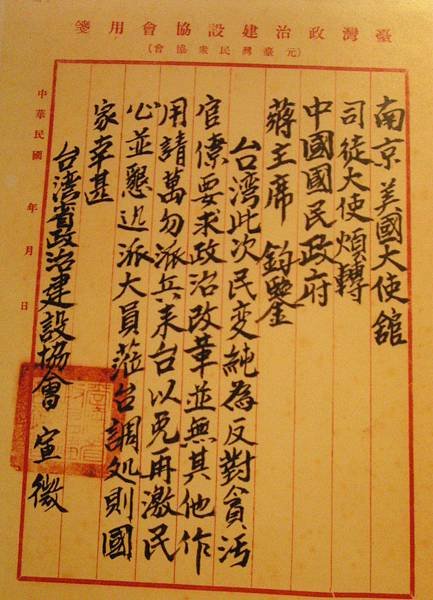 臺灣政治建設協會用箋
(元臺灣民衆協會)
南京美國大使舘
司徒大使煩轉
中國國民政府
蔣主席 鈞鑒
台湾此次民変純為反對貪污
官僚要求政治改革並無其他作
用請萬勿派兵来台以免再激民
心並懇迅派大員蒞台調処則國
家幸甚
台湾省政治建設協會 宣 微
中華民國 年 月 日